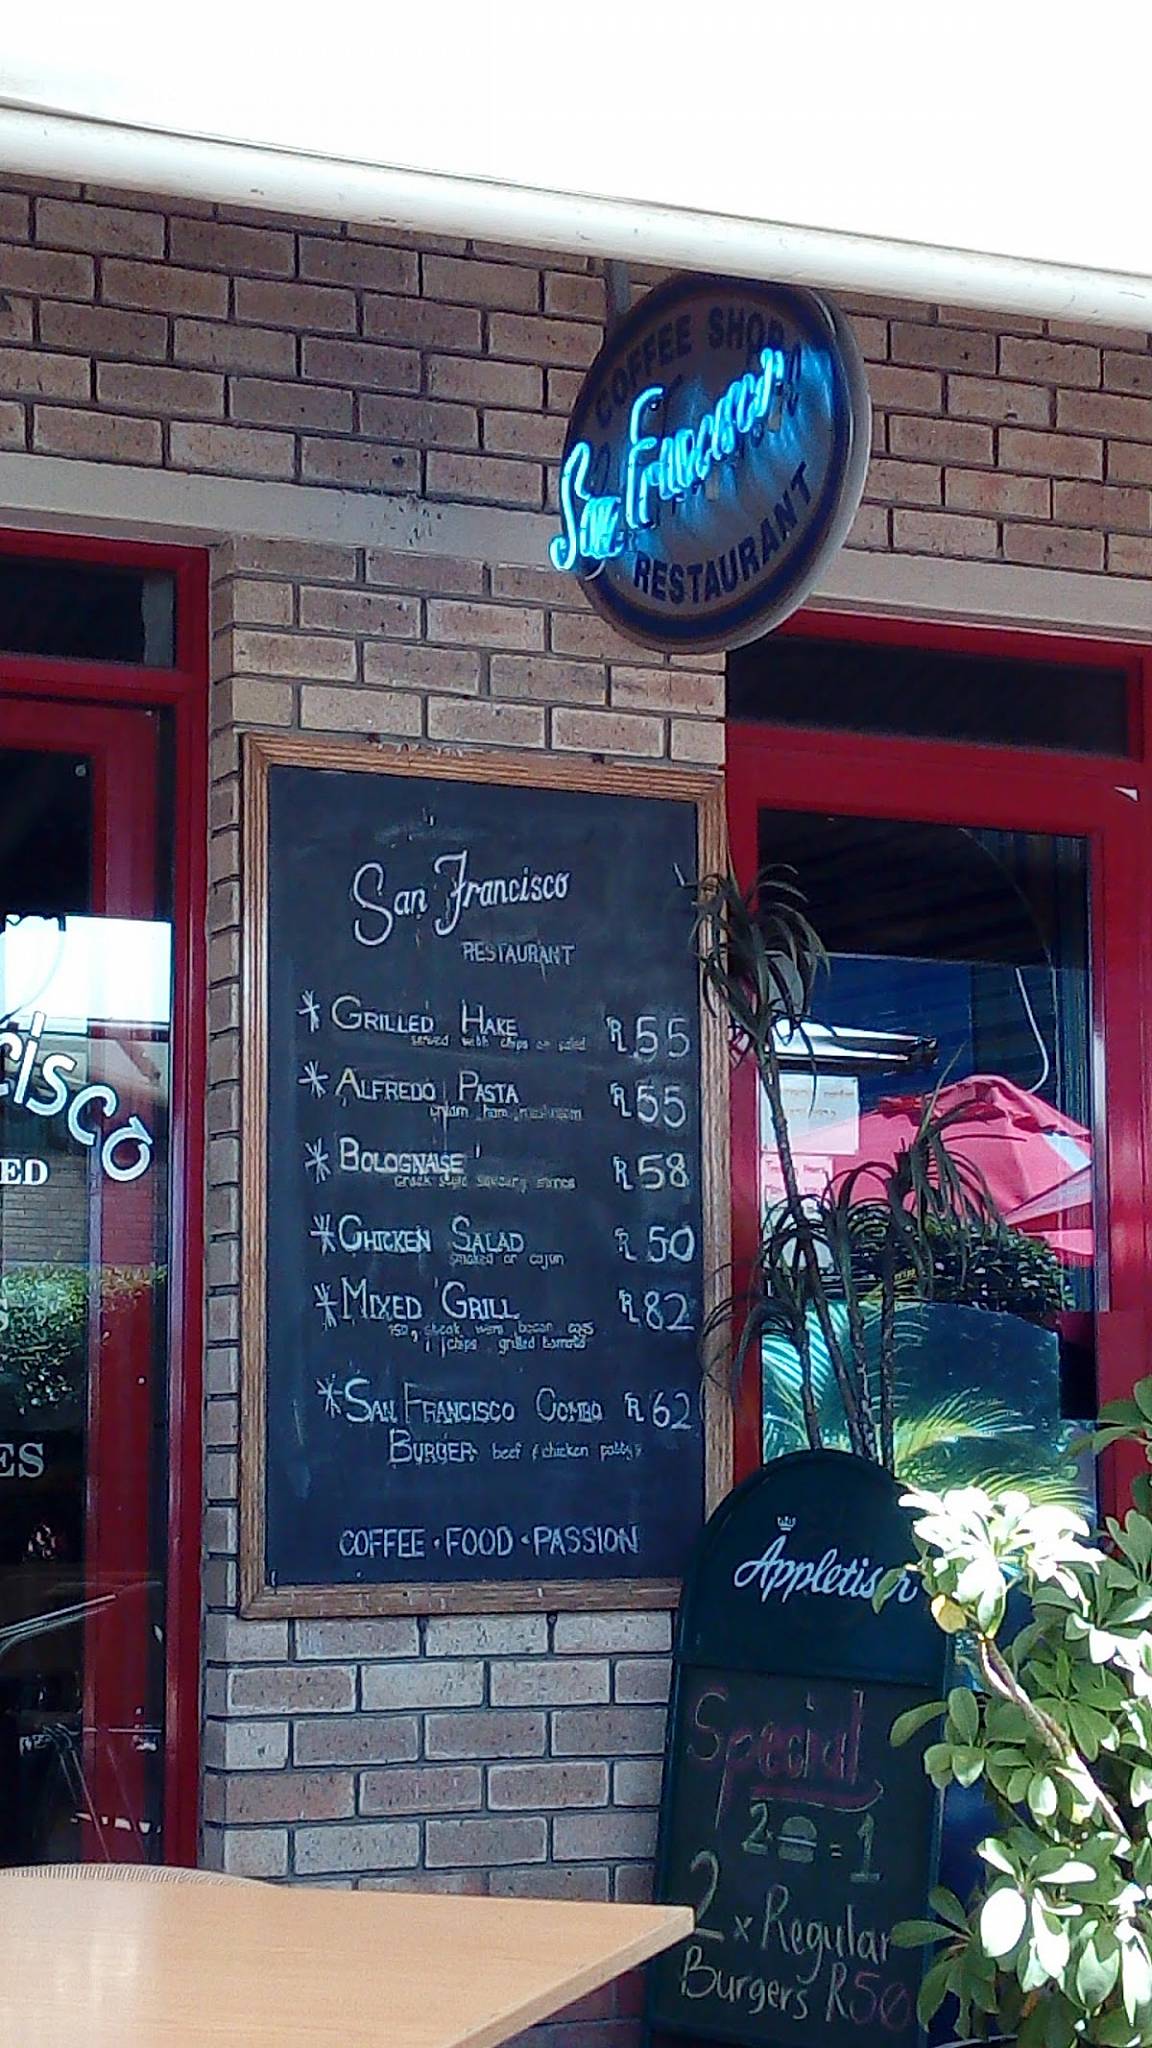 COFFEE SHOP
San Francisco
RESTAURANT
San Francisco
RESTAURANT
* GRILLED HAKE R55
served with chips or salad
* ALFREDO PASTA R55
cream ham mushroom
* BOLOGNAISE R58
Greek style savoury mince
* CHICKEN SALAD R50
smoked or cajun
* MIXED GRILL R82
150g steak wors bacon eggs
chips grilled tomato
* SAN FRANCISCO COMBO R62
BURGER: beef & chicken patty's
COFFEE · FOOD · PASSION
cisco
ED
ES
Appletiser
Special
2 = 1
2 x Regular
Burgers R50